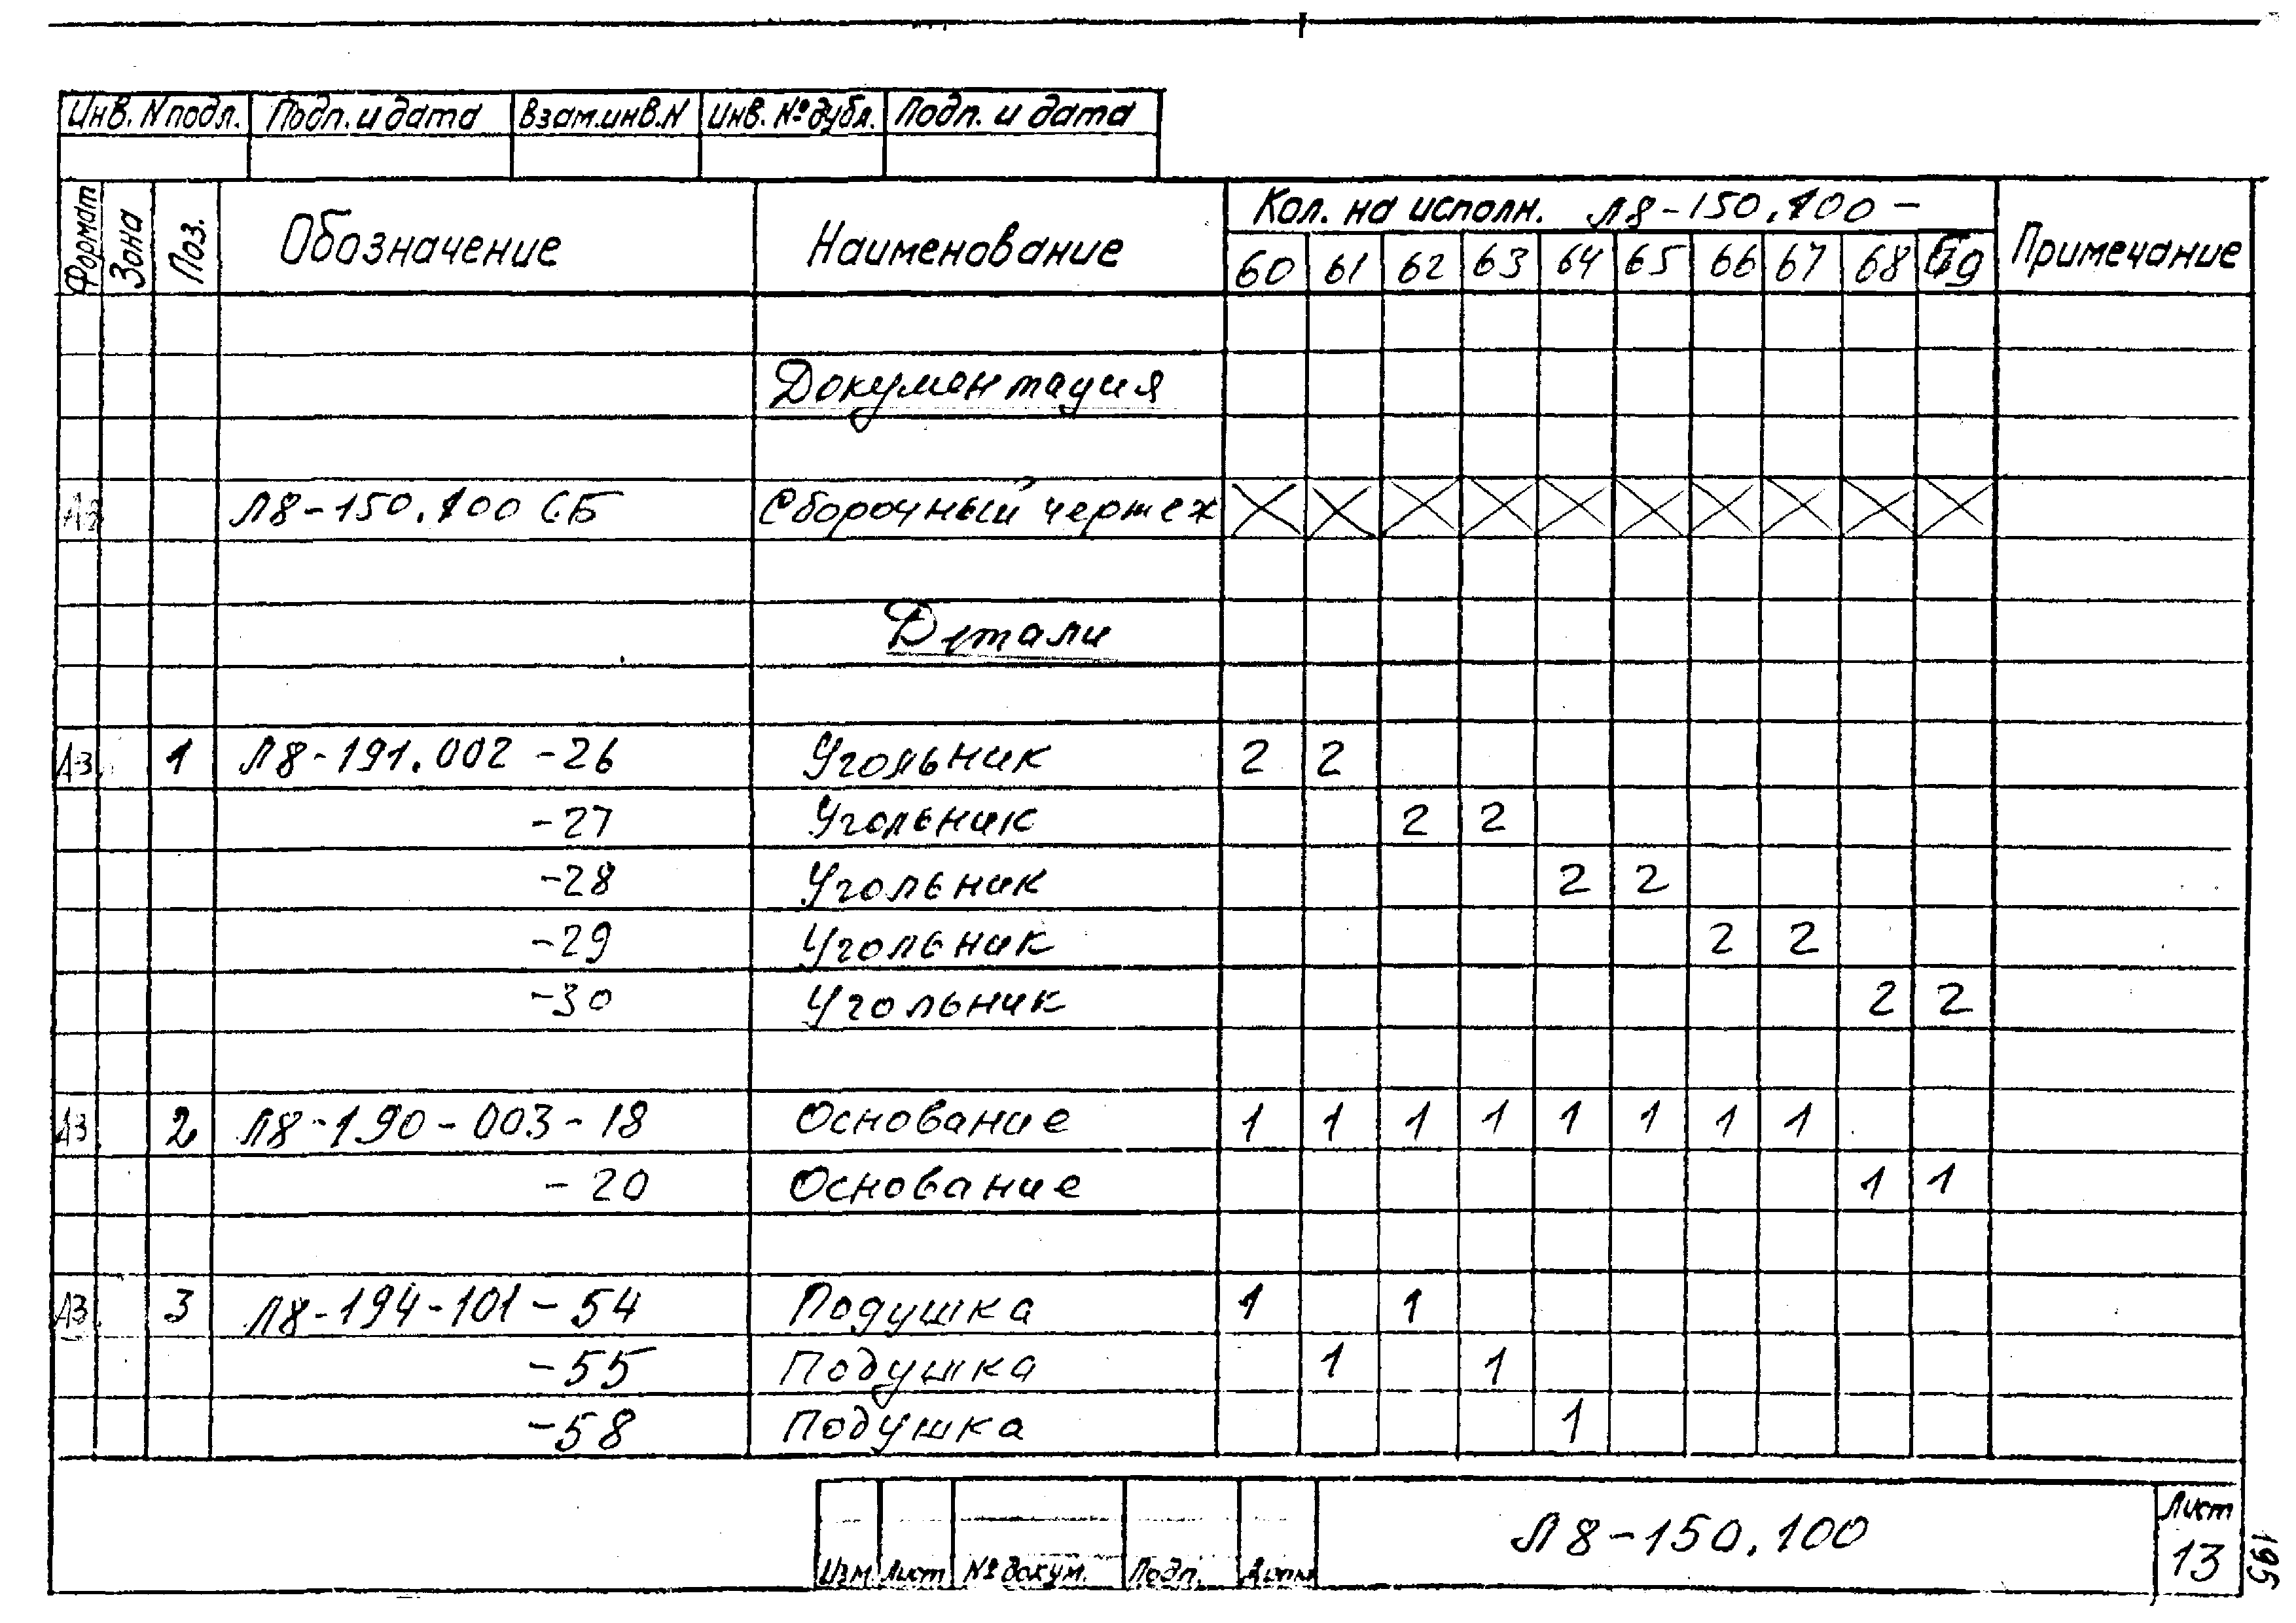 Инв. N подл. Подп. и дата Взам.инв.N Инв. № дубл. Подп. и дата
Формат Зона Поз. Обозначение Наименование Кол. на исполн. Л8-150.100- Примечание
60 61 62 63 64 65 66 67 68 69
Документация
А3 Л8-150.100 СБ Сборочный чертеж X X X X X X X X X X
Детали
А3 1 Л8-191.002-26 Угольник 2 2
-27 Угольник 2 2
-28 Угольник 2 2
-29 Угольник 2 2
-30 Угольник 2 2
А3 2 Л8-190-003-18 Основание 1 1 1 1 1 1 1 1
-20 Основание 1 1
А3 3 Л8-194-101-54 Подушка 1 1
-55 Подушка 1 1
-58 Подушка 1
Изм Лист № докум. Подп. Дата Л8-150.100 Лист
13
195